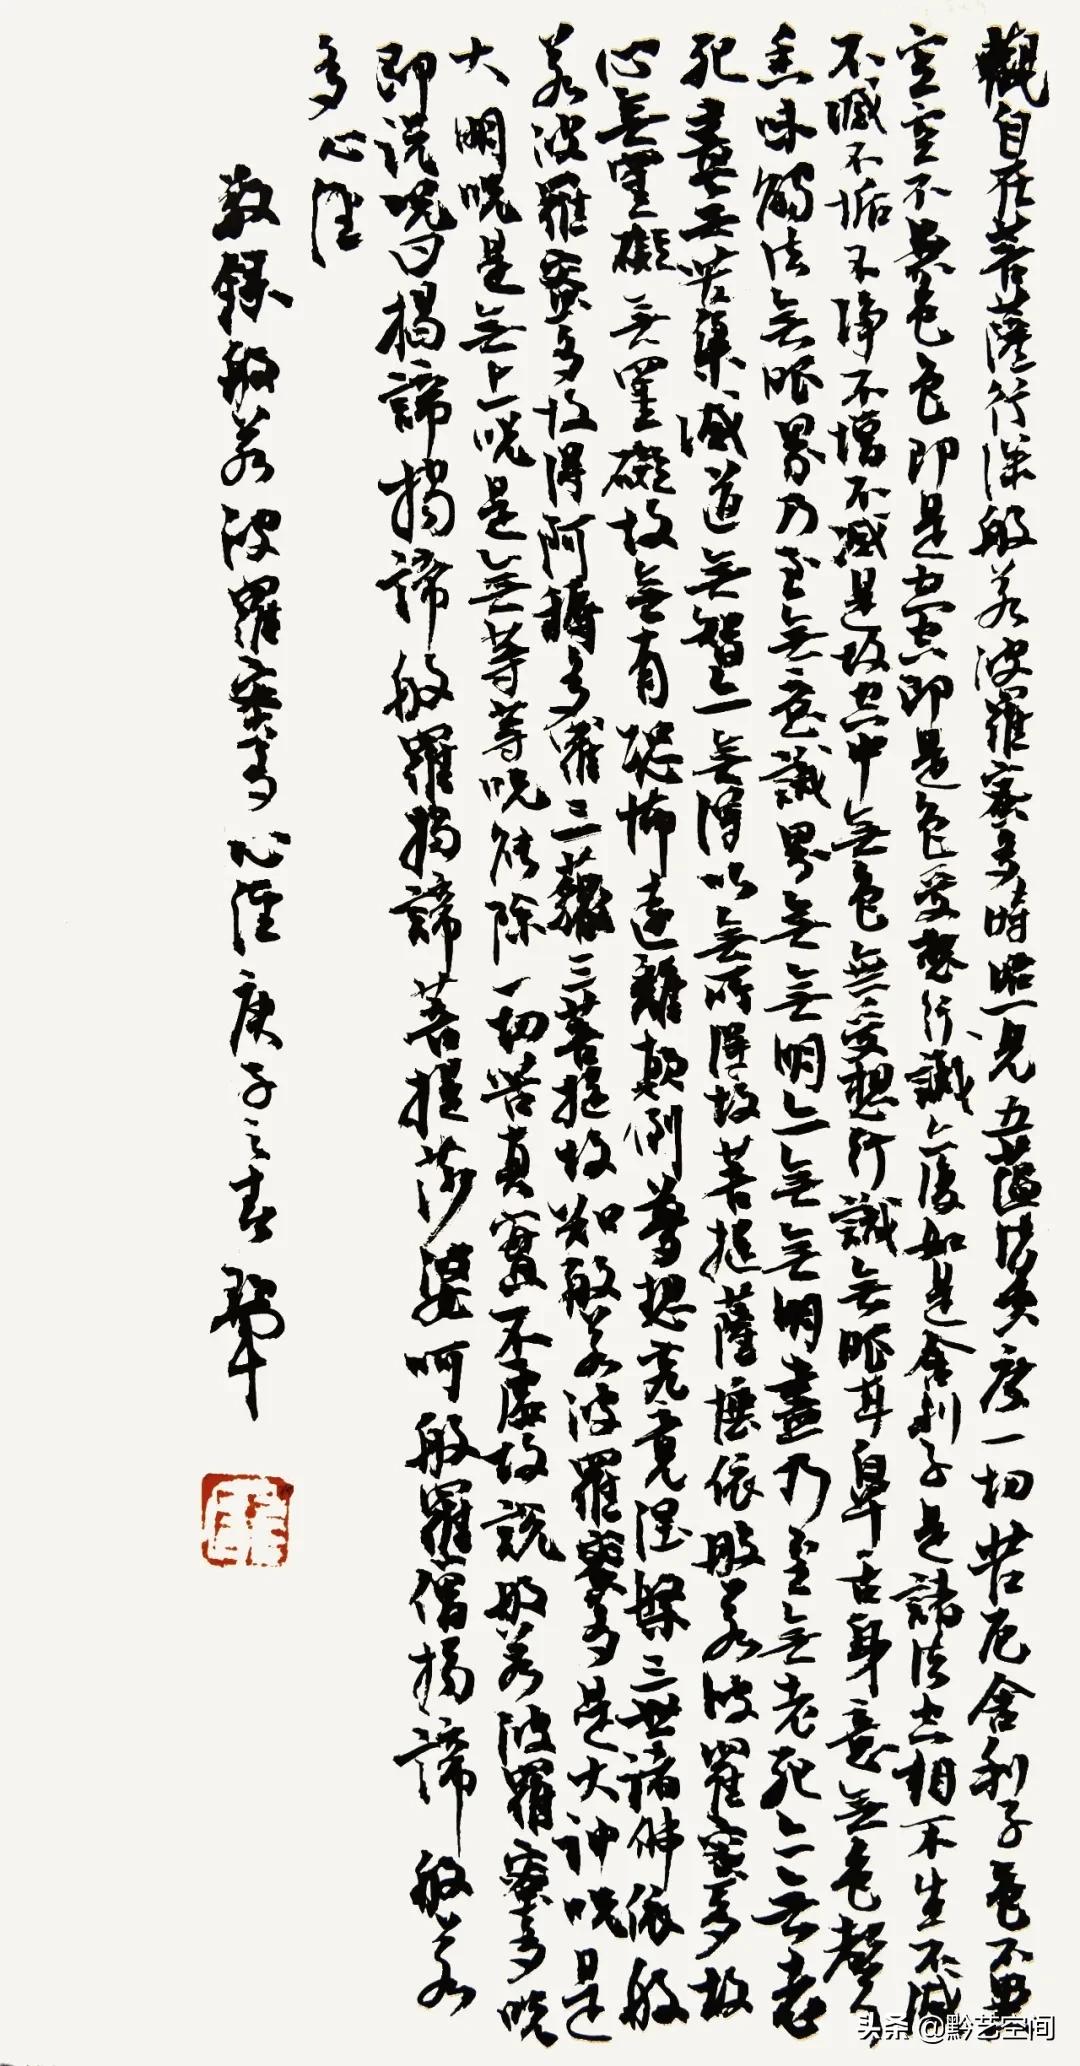 觀自在菩薩行深般若波羅蜜多時照見五蘊皆空度一切苦厄舍利子色不異
空空不異色色即是空空即是色受想行識亦復如是舍利子是諸法空相不生不滅
不滅不垢不淨不增不減是故空中無色無受想行識無眼耳鼻舌身意無色聲
香味觸法無眼界乃至無意識界無無明亦無無明盡乃至無老死亦無老
死盡無苦集滅道無智亦無得以無所得故菩提薩埵依般若波羅蜜多故
心無罣礙無罣礙故無有恐怖遠離顛倒夢想究竟涅槃三世諸佛依般
若波羅蜜多故得阿耨多羅三藐三菩提故知般若波羅蜜多是大神呪是
大明呪是無上呪是無等等呪能除一切苦真實不虛故說般若波羅蜜多呪
即說呪曰揭諦揭諦般羅揭諦菩提莎婆呵般羅僧揭諦般若
多心經
敬錄般若波羅蜜多心經庚子之春
头条 @黔艺空间